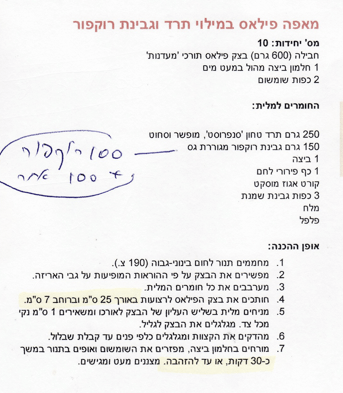 מאפה פילאס במילוי תרד וגבינת רוקפור
מס' יחידות: 10
חבילה (600 גרם) בצק פילאס תורכי 'מעדנות'
1 חלמון ביצה מהול במעט מים
2 כפות שומשום
החומרים למלית:
250 גרם תרד טחון 'סנפרוסט', מופשר וסחוט
150 גרם גבינת רוקפור מגוררת גס
1 ביצה
1 כף פירורי לחם
קורט אגוז מוסקט
3 כפות גבינת שמנת
מלח
פלפל
100 רוקפור
100 אחר
אופן ההכנה:
1. מחממים תנור לחום בינוני-גבוה (190 צ.).
2. מפשירים את הבצק על פי ההוראות המופיעות על גבי האריזה.
3. מערבבים את כל חומרים המלית.
4. חותכים את בצק הפילאס לרצועות באורך 25 ס"מ וברוחב 7 ס"מ.
5. מניחים מלית בשליש העליון של הבצק לאורכו ומשאירים 1 ס"מ נקי
מכל צד. מגלגלים את הבצק לגליל.
6. מהדקים את הקצוות ומגלגלים כלפי פנים עד קבלת שבלול.
7. מורחים בחלמון ביצה, מפזרים את השומשום ואופים בתנור במשך
כ-30 דקות, או עד להזהבה. מצננים מעט ומגישים.